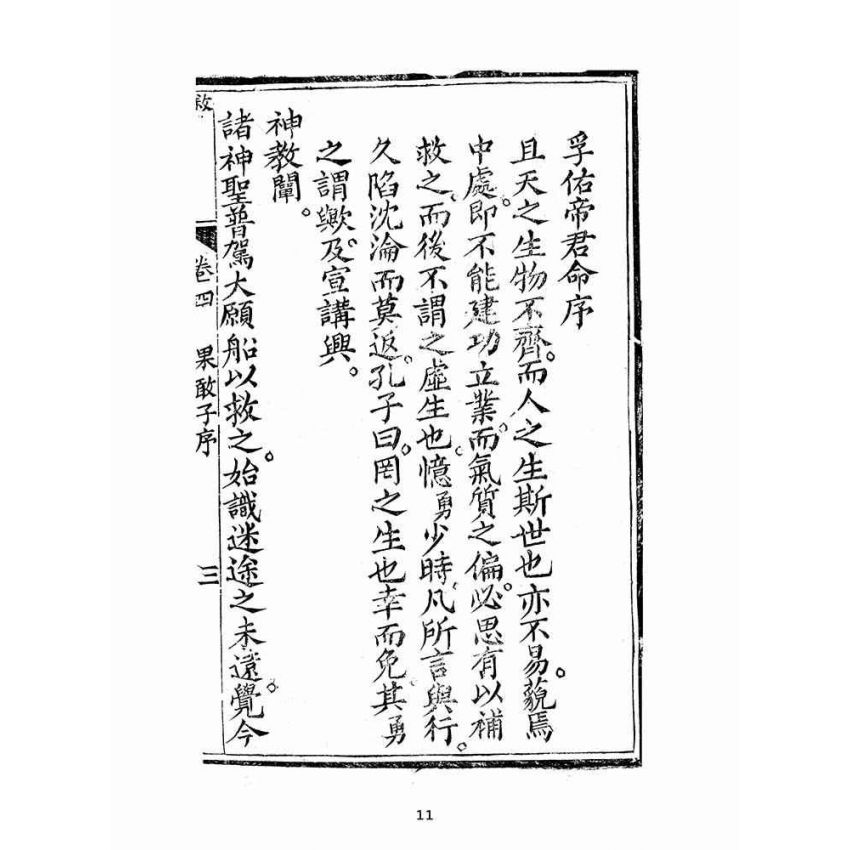 孚佑帝君命序
且天之生物不齊。而人之生斯世也亦不易。藐焉
中處。即不能建功立業。而氣质之偏。必思有以補
救之。而後不謂之虛生也。憶勇少時。凡所言與行。
久陷沈淪而莫返。孔子曰。罔之生也幸而免。其勇
之謂歟。及宣講興。
神教闡。
諸神聖普駕大願船以救之。始識迷途之未遠。覺今
卷四 果敢子序 三
11